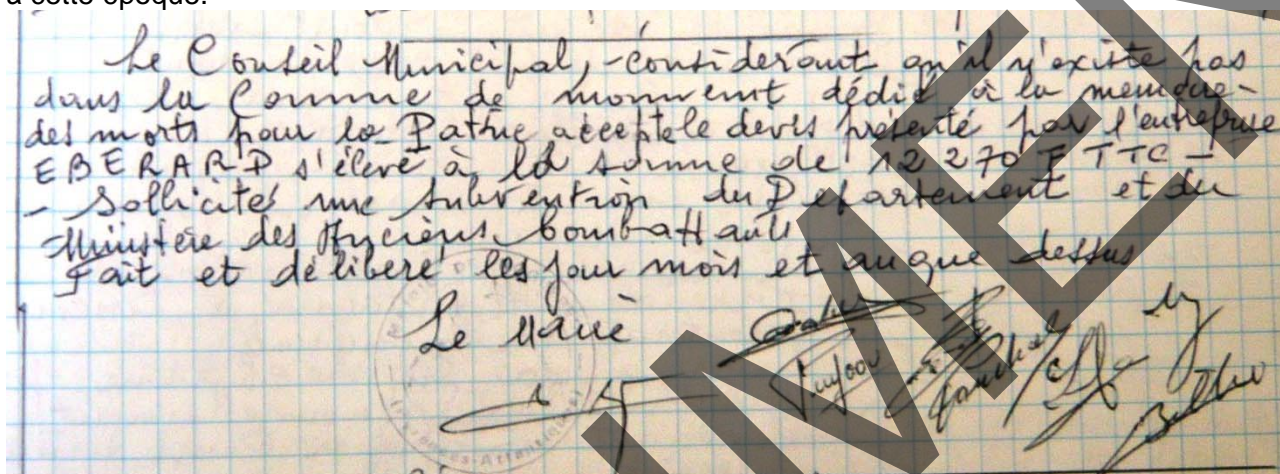 à cette époque.
Le Conseil Municipal, - considérant qu'il n'existe pas
dans la Commune de monument dédié à la mémoire
des morts pour la Patrie accepte le devis présenté par l'entreprise
EBERARD s'élevé à la somme de 12 270 F TTC -
- Sollicite une subvention du Département et du
Ministère des Anciens Combattants
Fait et délibéré les jour mois et an que dessus
Le Maire